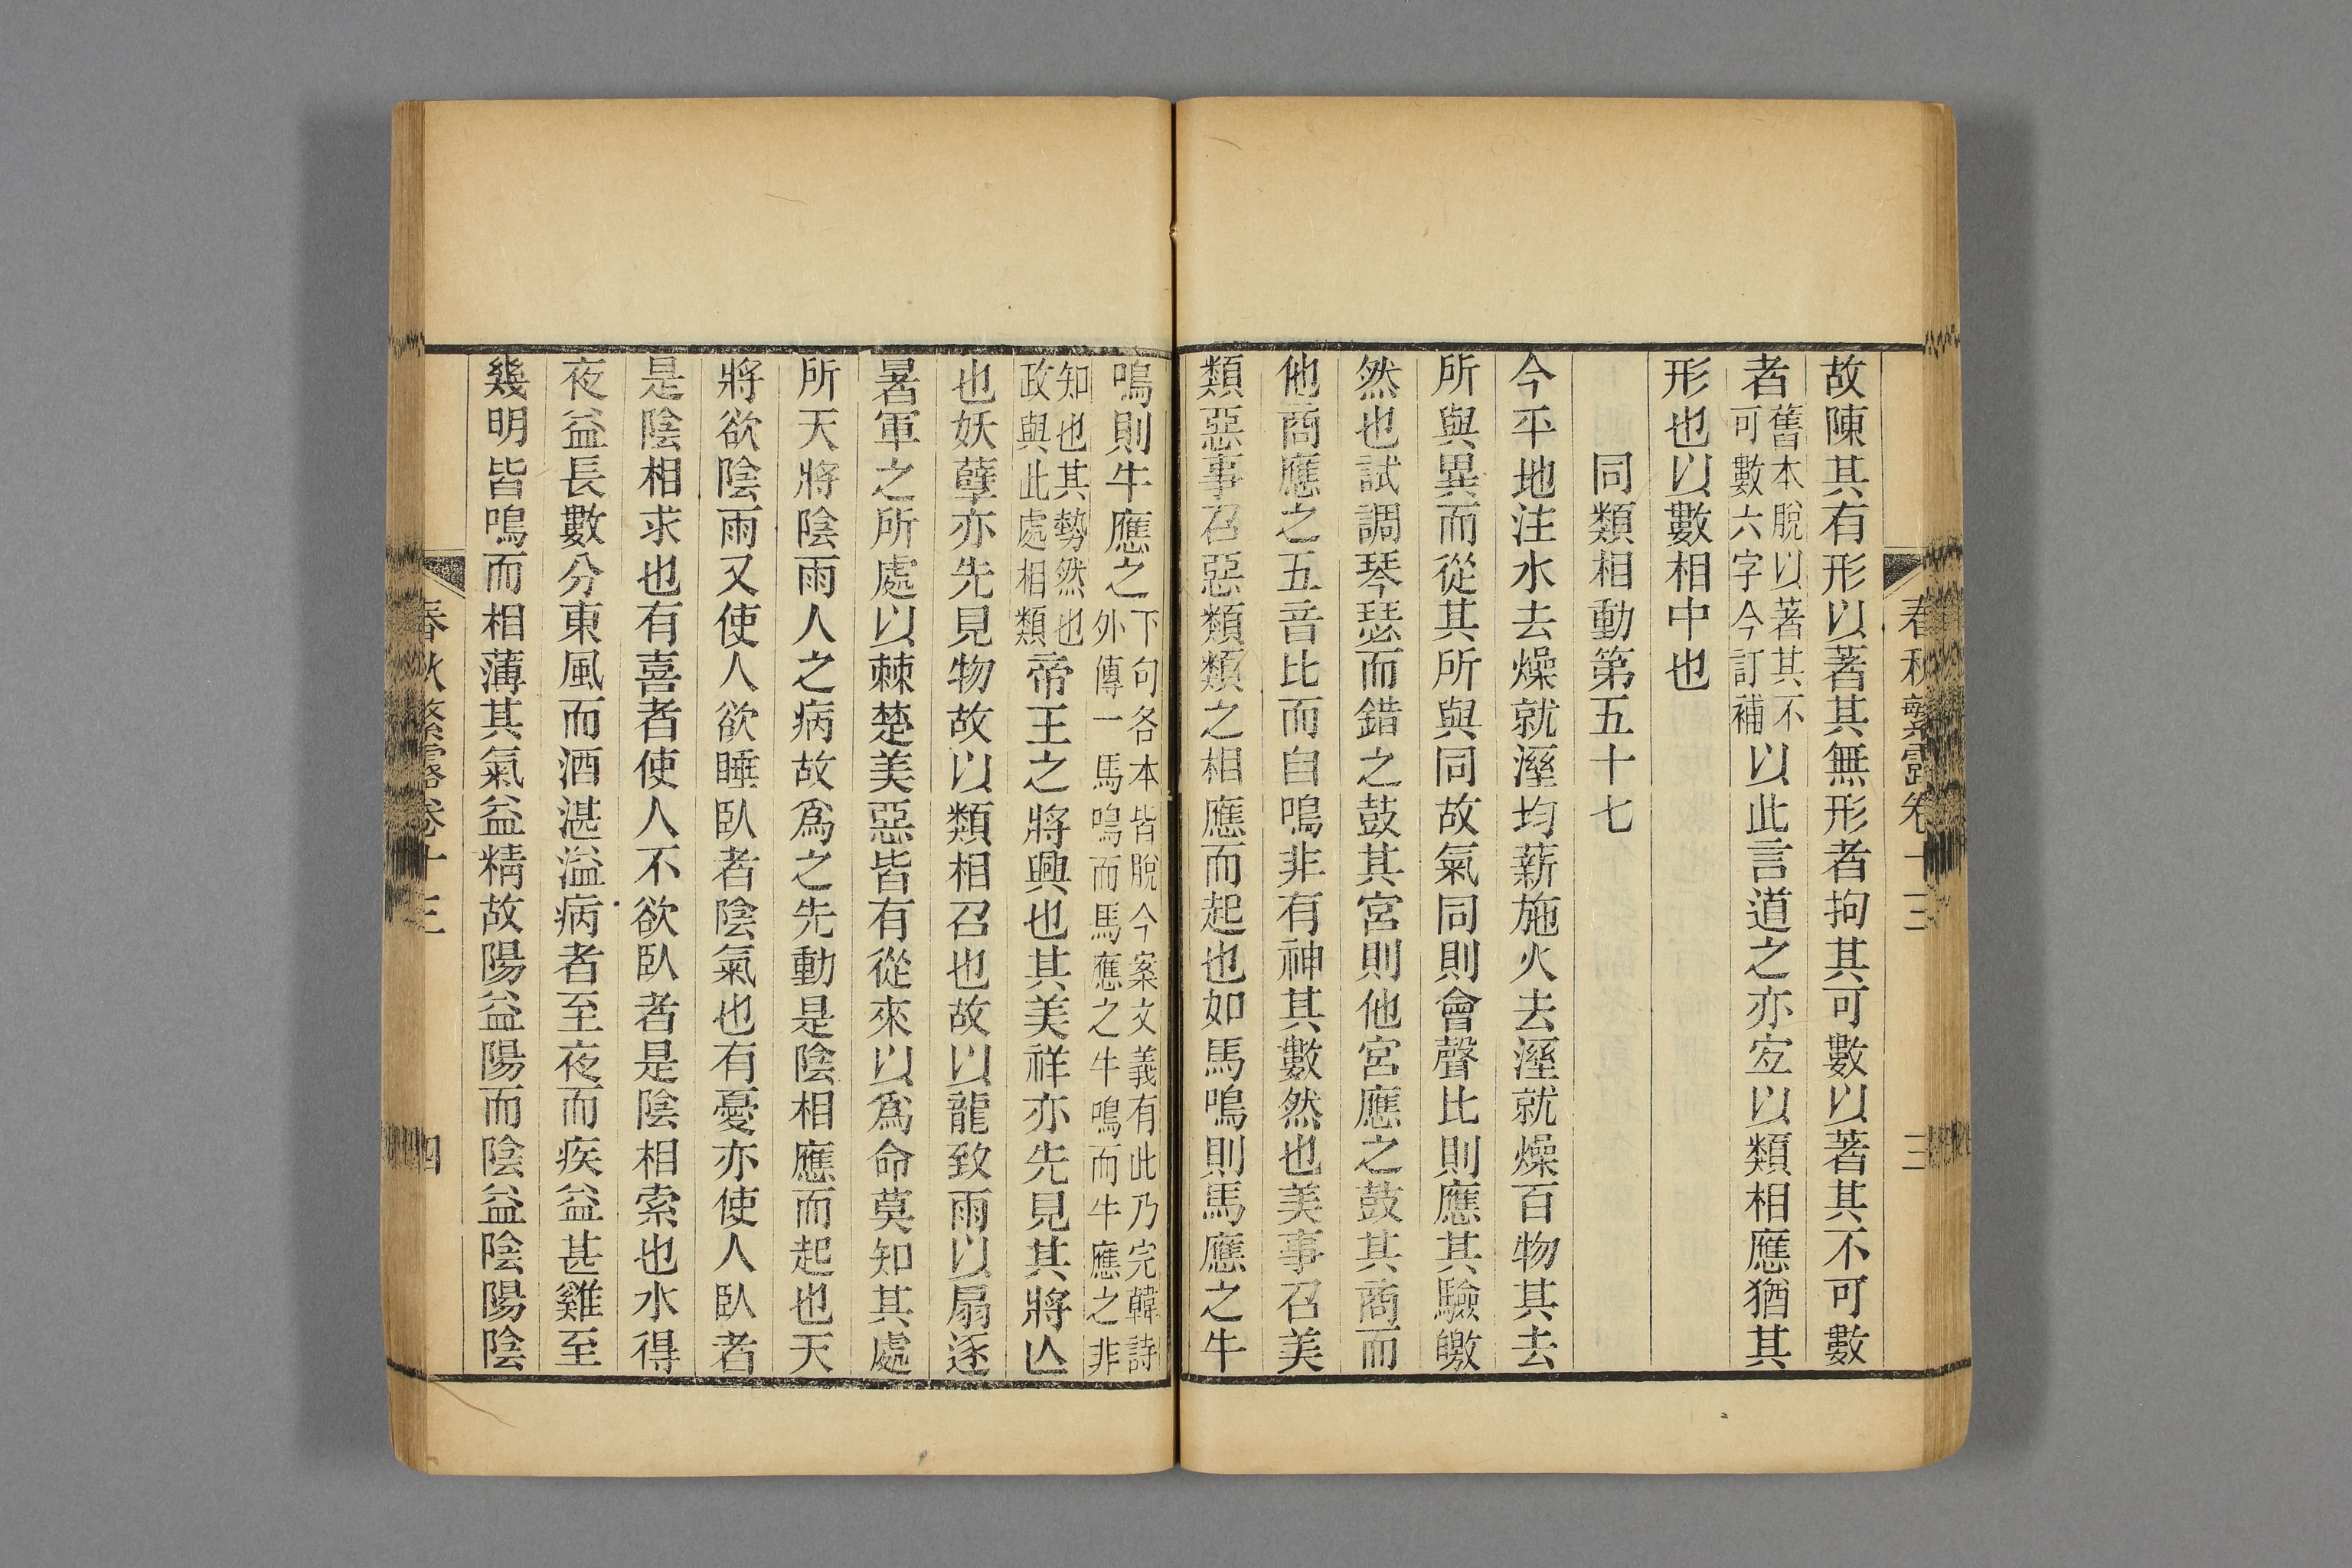 春秋繁露卷十三 三
故陳其有形以著其無形者拘其可數以著其不可數
者舊本脫以著其不可數六字今訂補以此言道之亦宐以類相應猶其
形也以數相中也
同類相動第五十七
今平地注水去燥就溼均薪施火去溼就燥百物其去
所與異而從其所與同故氣同則會聲比則應其驗皦
然也試調琴瑟而錯之鼓其宮則他宮應之鼓其商而
他商應之五音比而自鳴非有神其數然也美事召美
類惡事召惡類類之相應而起也如馬鳴則馬應之牛
鳴則牛應之下句各本皆脫今案文義有此乃完韓詩外傳一馬鳴而馬應之牛鳴而牛應之非
知也其勢然也政與此處相類帝王之將興也其美祥亦先見其將亾
也妖孽亦先見物故以類相召也故以龍致雨以扇逐
暑軍之所處以棘楚美惡皆有從來以爲命莫知其處
所天將陰雨人之病故爲之先動是陰相應而起也天
將欲陰雨又使人欲睡臥者陰氣也有憂亦使人臥者
是陰相求也有喜者使人不欲臥者是陰相索也水得
夜益長數分東風而酒湛溢病者至夜而疾益甚雞至
幾明皆鳴而相薄其氣益精故陽益陽而陰益陰陽陰
春秋繁露卷十三 四